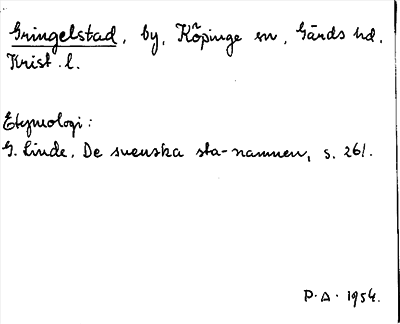 Gringelstad, by, Köpinge sn, Gärds hd.
Krist. l.
Etymologi:
G. Linde, De svenska sta-namnen, s. 261.
P. A. 1954.